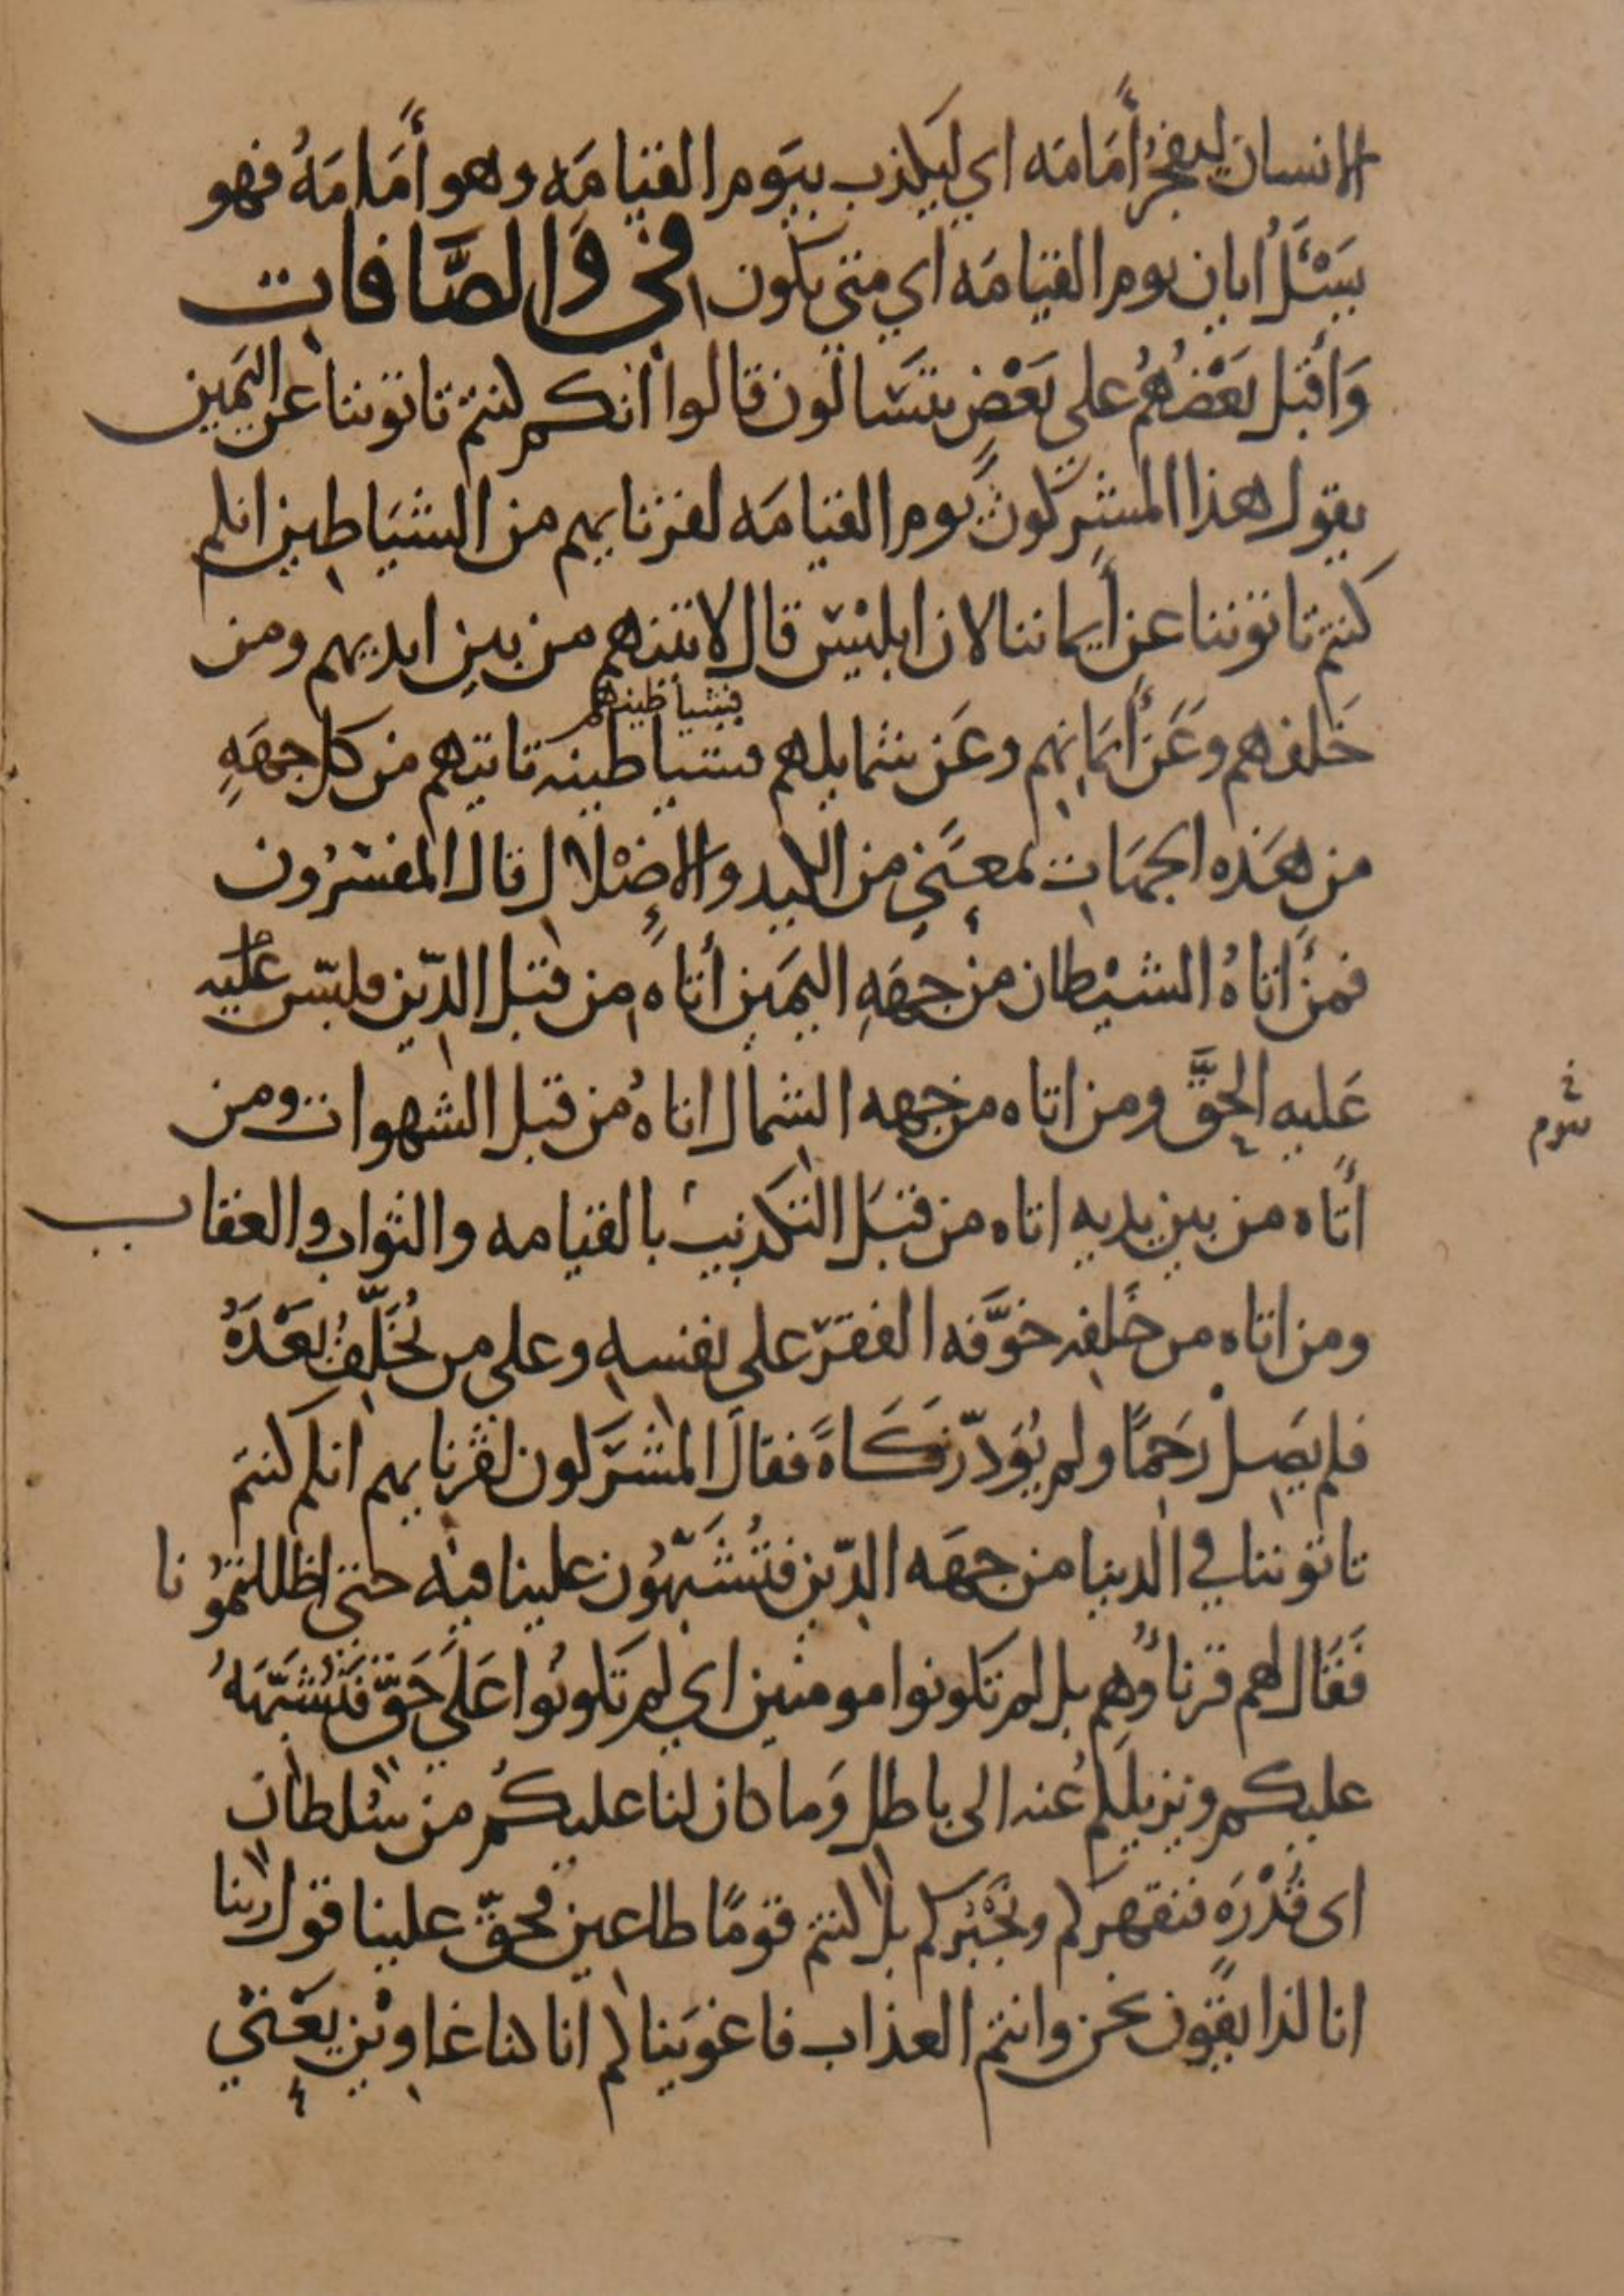 الانسان ليفجُرَ أمَامَه اي ليكذب بيَوم القيَامَه وهو أمَامَهُ فهو
يَسْئَلُ ايان يوم القيامَه اي متي يكون في وَالصَّافات
وَاقبَل بَعْضُهُمُ علي بَعْضٍ يتسَالون قالوا انكم كنتم تاتوننا عن اليَمين
يقول هذا المشركون يوم القيامَه لقرنايهم من الشيَاطين انكم
كنتم تاتوننا عن أيماننا لان ابليس قال لاتينهم من بين ايديهم ومن
خَلفهم وَعَن أيمَانهم وعَن شمايلهم فشياطينه تاتيهم من كل جهَهِ
فشياطينهم
من هَذه الجهَات بمعنَي من الكيد والاضْلال قال المفسرُون
فمن أتاهُ الشيْطان من جهَهِ اليمَين أتاه من قبَل الدّين فلبّس عليه
عَليه الحقَّ ومن اتاه من جهه الشمال اتاهُ من قبل الشهوات ومن
أتاه من بين يديه اتاه من قبَل التكذيب بالقيامه والثواب والعقاب
ومن اتاه من خَلفه خوَّفه الفقر علي نفسه وعلي من يُخَلّفُ بَعْدَهُ
فلم يَصِل رَحِمًا ولم يُوَدّ زَكَاةً فقال المشركون لقرنايهم انكم كنتم
تاتوننا في الدنيا من جهَه الدّين فتُشَبّهُون علينا فيه حتي اظللتمُونا
فَقَال لهم قرناؤُهم بل لم تكونوا مومنين اي لم تكونُوا عَلَي حَقّ فَنُشَبّهَهُ
عليكم ونزيلكم عنه الى باطل وَما كان لنا عليكُم من سُلطان
اى قُدْرَهٍ فنقهركم ونُجْبركم بل كنتم قومًا طاعين فحقّ علينا قول ربنا
انا لذايقون نحن وانتم العذاب فاغويناكم انا كنا غاوين يَعْني